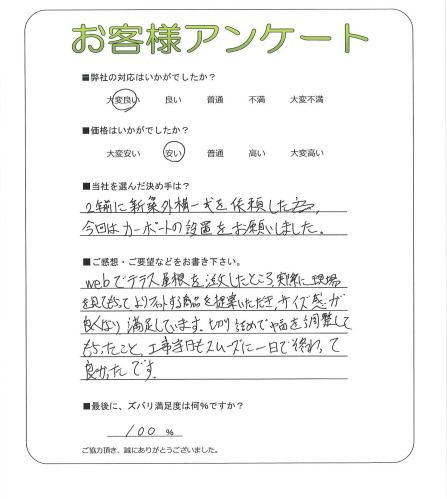 お客様アンケート
■弊社の対応はいかがでしたか?
大変良い 良い 普通 不満 大変不満
■価格はいかがでしたか?
大変安い 安い 普通 高い 大変高い
■当社を選んだ決め手は?
2年前に新築外構一式を依頼した為,
今回はカーポートの設置をお願いしました。
■ご感想・ご要望などをお書き下さい。
webでテラス屋根を注文したところ実際に現場
を見てもらってよりフィットする商品を提案いただき,サイズ感が
良くなり満足しています。切り詰めで幅を調整して
もらったこと、工事当日もスムーズに一日で終わって
良かったです。
■最後に、ズバリ満足度は何%ですか?
100 %
ご協力頂き、誠にありがとうございました。